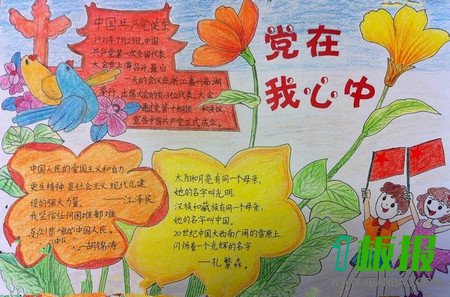 中国共产党诞生
1921年7月23日,中国
共产党第一次全国代表
大会在上海召开,最后
一天的会议在浙江嘉兴南湖
举行,出席大会的有13位代表,大会
通过党第个纲领和决议
宣告中国共产党正式成立。
党在
我心中
中国人民的爱国主义和自力
更生精神是社会主义现代化建
设的强大力量。——江泽民
我坚信任何困难都难
中国人民。
——胡锦涛
太阳和月亮有同一个母亲,
她的名字叫光明,
汉族和藏族有同一个母亲,
她的名字叫中国,
20世纪中国大西南广阔的雪原上,
闪烁着一个光辉的名字
——孔繁森。
板报